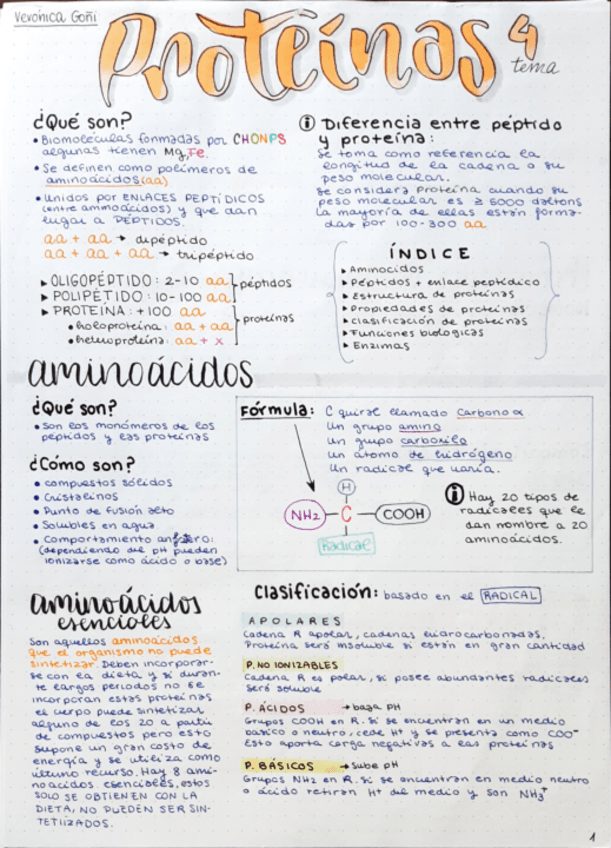 Verónica Goñi
Proteínas 4
tema
¿Qué son?
• Biomoléculas formadas por CHONPS
algunas tienen Mg, Fe.
• Se definen como polímeros de
aminoácidos (aa)
• Unidos por ENLACES PEPTÍDICOS
(entre aminoácidos) y que dan
lugar a PÉPTIDOS.
aa + aa → dipéptido
aa + aa + aa → tripéptido
▸ OLIGOPÉPTIDO: 2-10 aa
▸ POLIPÉTIDO: 10-100 aa
péptidos
▸ PROTEÍNA: +100 aa
• holoproteína: aa + aa
• heteroproteína: aa + x
proteínas
ⓘ Diferencia entre péptido
y proteína:
Se toma como referencia la
longitud de la cadena o su
peso molecular.
Se considera proteína cuando su
peso molecular es ≥ 5000 daltons
La mayoría de ellas están forma-
das por 100-300 aa
ÍNDICE
▸ Aminocidos
▸ Péptidos + enlace peptídico
▸ Estructura de proteínas
▸ Propiedades de proteínas
▸ Clasificación de proteínas
▸ Funciones biologicas
▸ Enzimas
aminoácidos
¿Qué son?
• Son los monómeros de los
peptidos y las proteínas
¿Cómo son?
• Compuestos sólidos
• Cristalinos
• Punto de fusión alto
• Solubles en agua
• Comportamiento anfótero:
(dependiendo del pH pueden
ionizarse como ácido o base)
Fórmula:
C quiral llamado Carbono α
Un grupo amino
Un grupo carboxilo
Un átomo de hidrógeno
Un radical que varía.
H
NH2 - C - COOH
Radical
ⓘ Hay 20 tipos de
radicales que le
dan nombre a 20
aminoácidos.
aminoácidos
esenciales
Son aquellos aminoácidos
que el organismo no puede
sintetizar. Deben incorporar-
se con la dieta y si duran-
te largos periodos no se
incorporan estas proteínas
el cuerpo puede sintetizar
alguno de los 20 a partir
de compuestos pero esto
supone un gran costo de
energía y se utiliza como
último recurso. Hay 8 ami-
noacidos esenciales, estos
SOLO SE OBTIENEN CON LA
DIETA, NO PUEDEN SER SIN-
TETIIZADOS.
Clasificación: basado en el RADICAL
APOLARES
Cadena R apolar, cadenas hidrocarbonadas.
Proteína será insoluble si están en gran cantidad
P. NO IONIZABLES
Cadena R es polar, si posee abundantes radicales
será soluble
P. ÁCIDOS → baja pH
Grupos COOH en R. Si se encuentran en un medio
basico o neutro, cede H+ y se presenta como COO-
Esto aporta carga negativas a las proteínas
P. BÁSICOS → Sube pH
Grupos NH2 en R. Si se encuentran en medio neutro
o ácido retiran H+ del medio y son NH3+
1